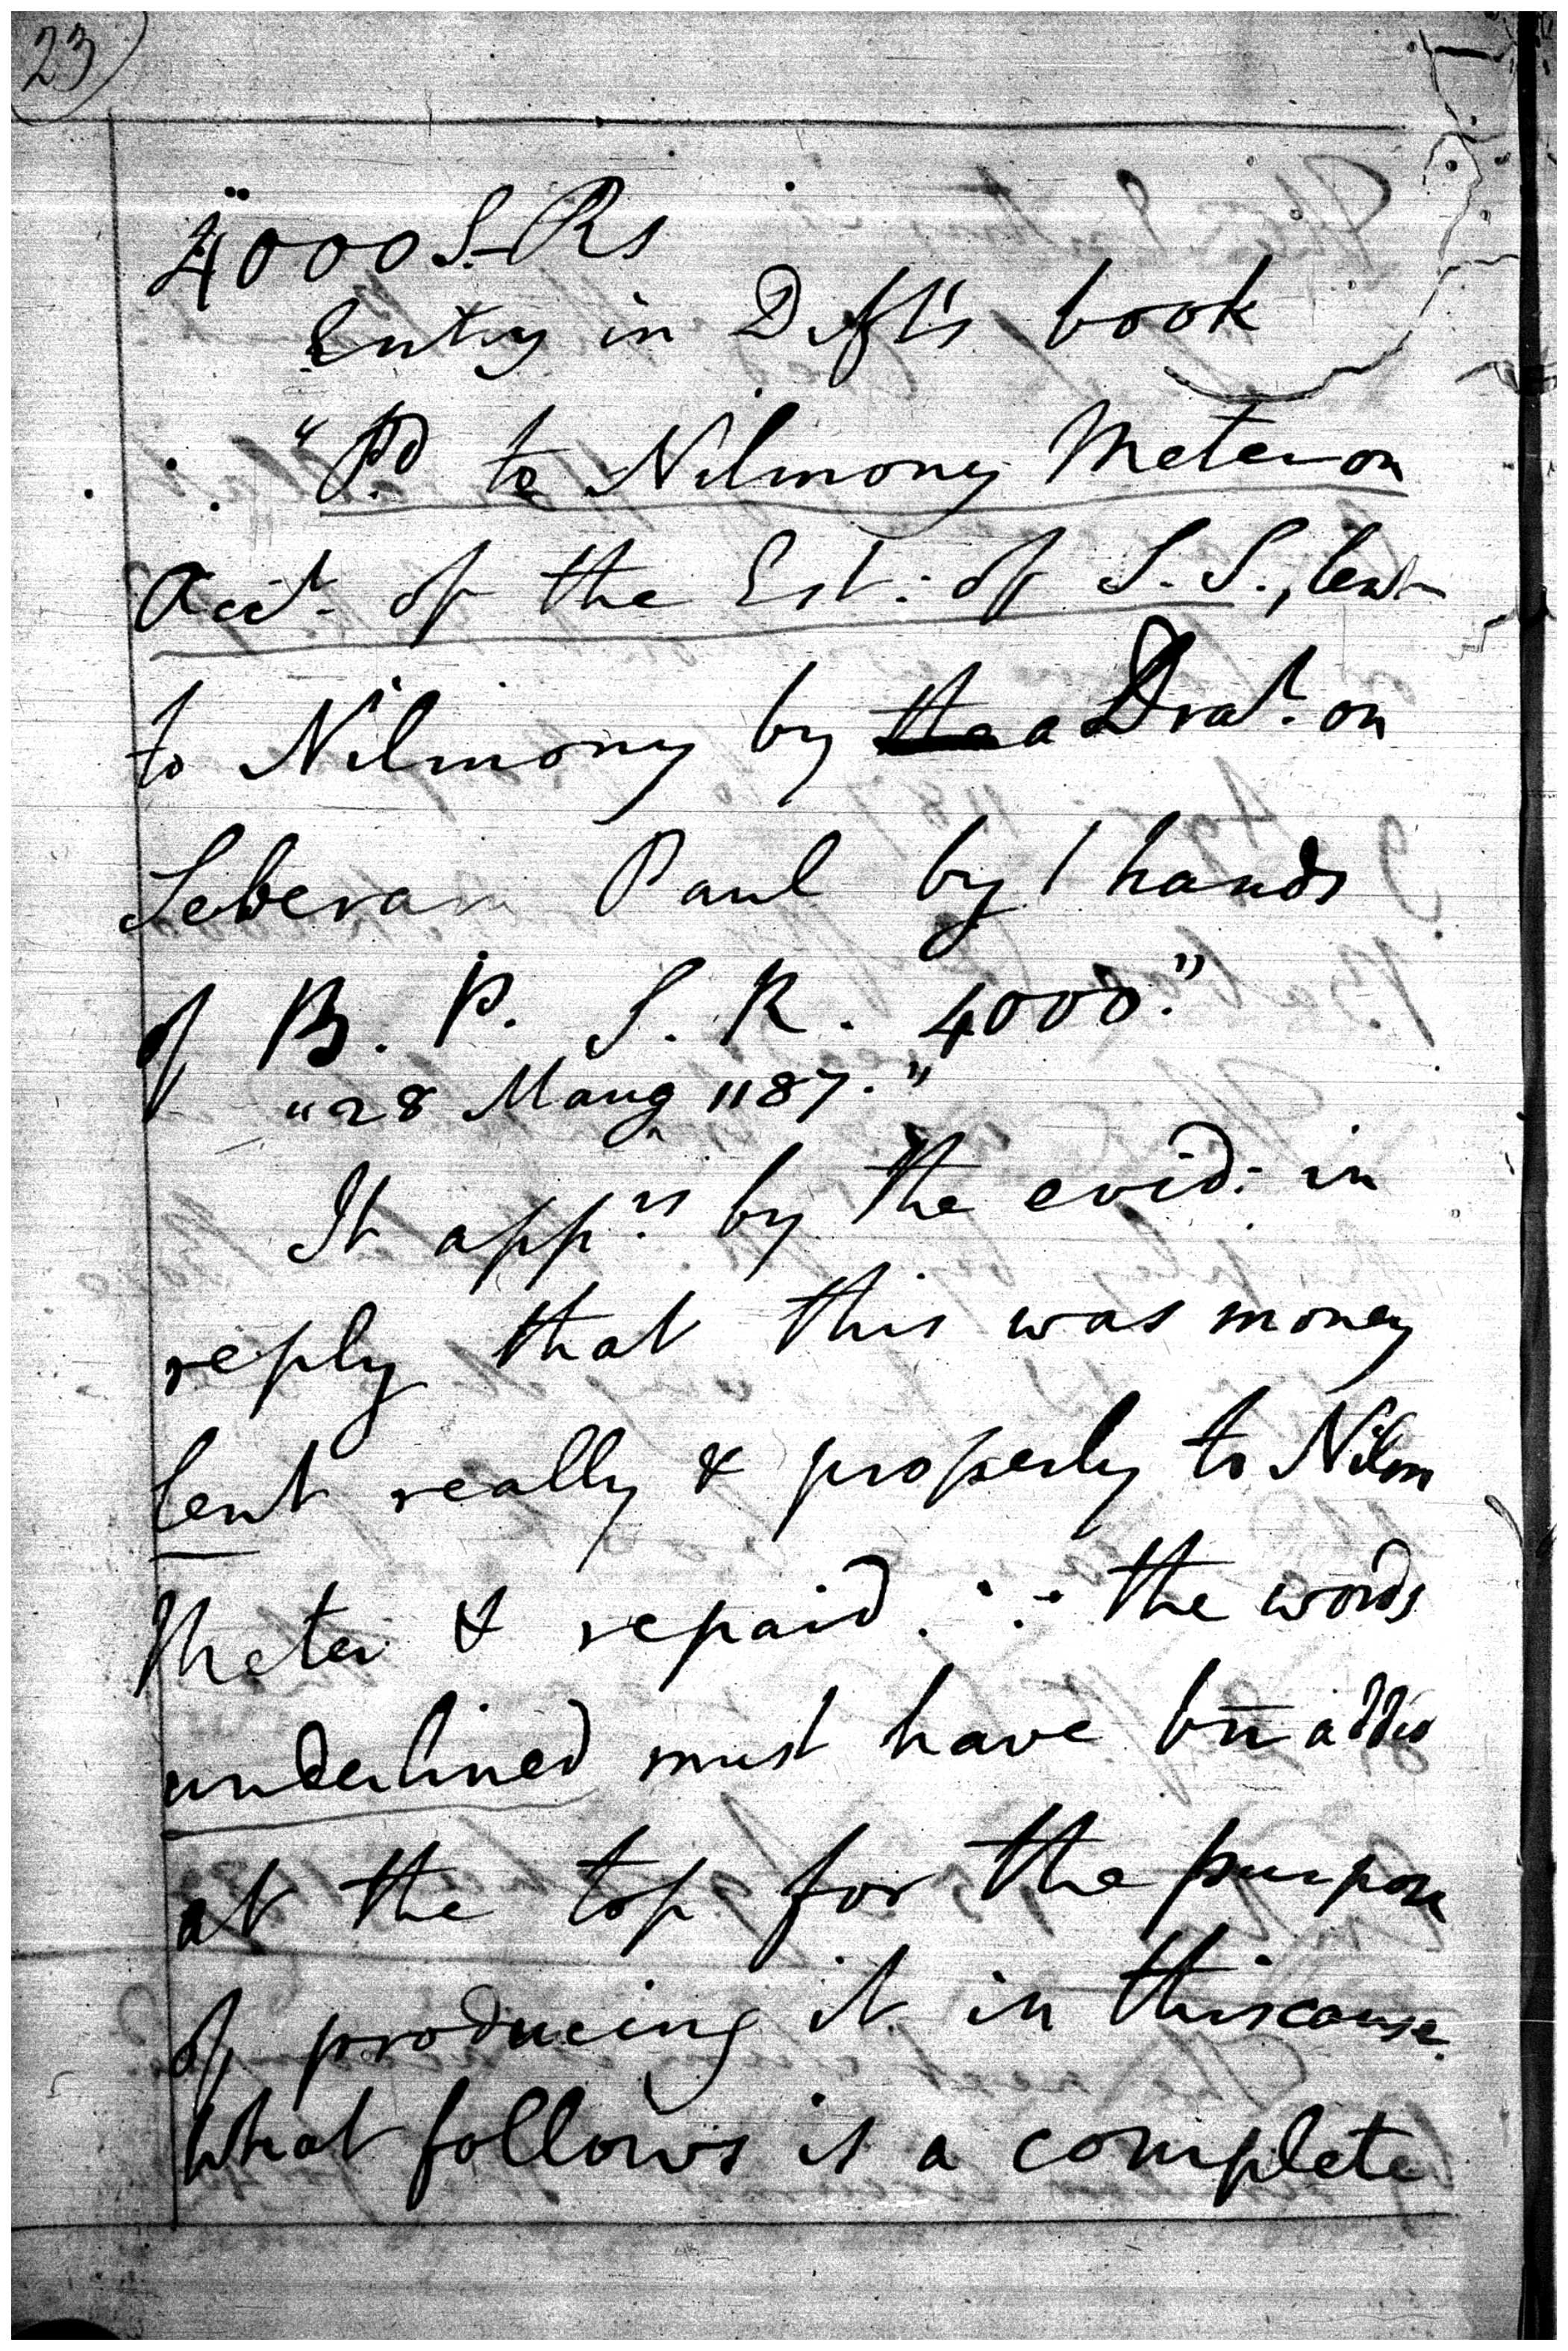 23
4000 S. Rs
Entry in Deft's book
"Pd to Nilmoney Meter on
Acct. of the Est. of S. S., lent
to Nilmony by a Drat. on
Seberam Paul by / hands
of B. P. S. R. 4000."
"28 Maug 1187."
It app.rs by the evid: in
reply that this was money
lent really & properly to Nilm
Meter & repaid. ∴ the words
underlined must have bn added
at the top for the purpose
of producing it in this cause.
What follows is a complete